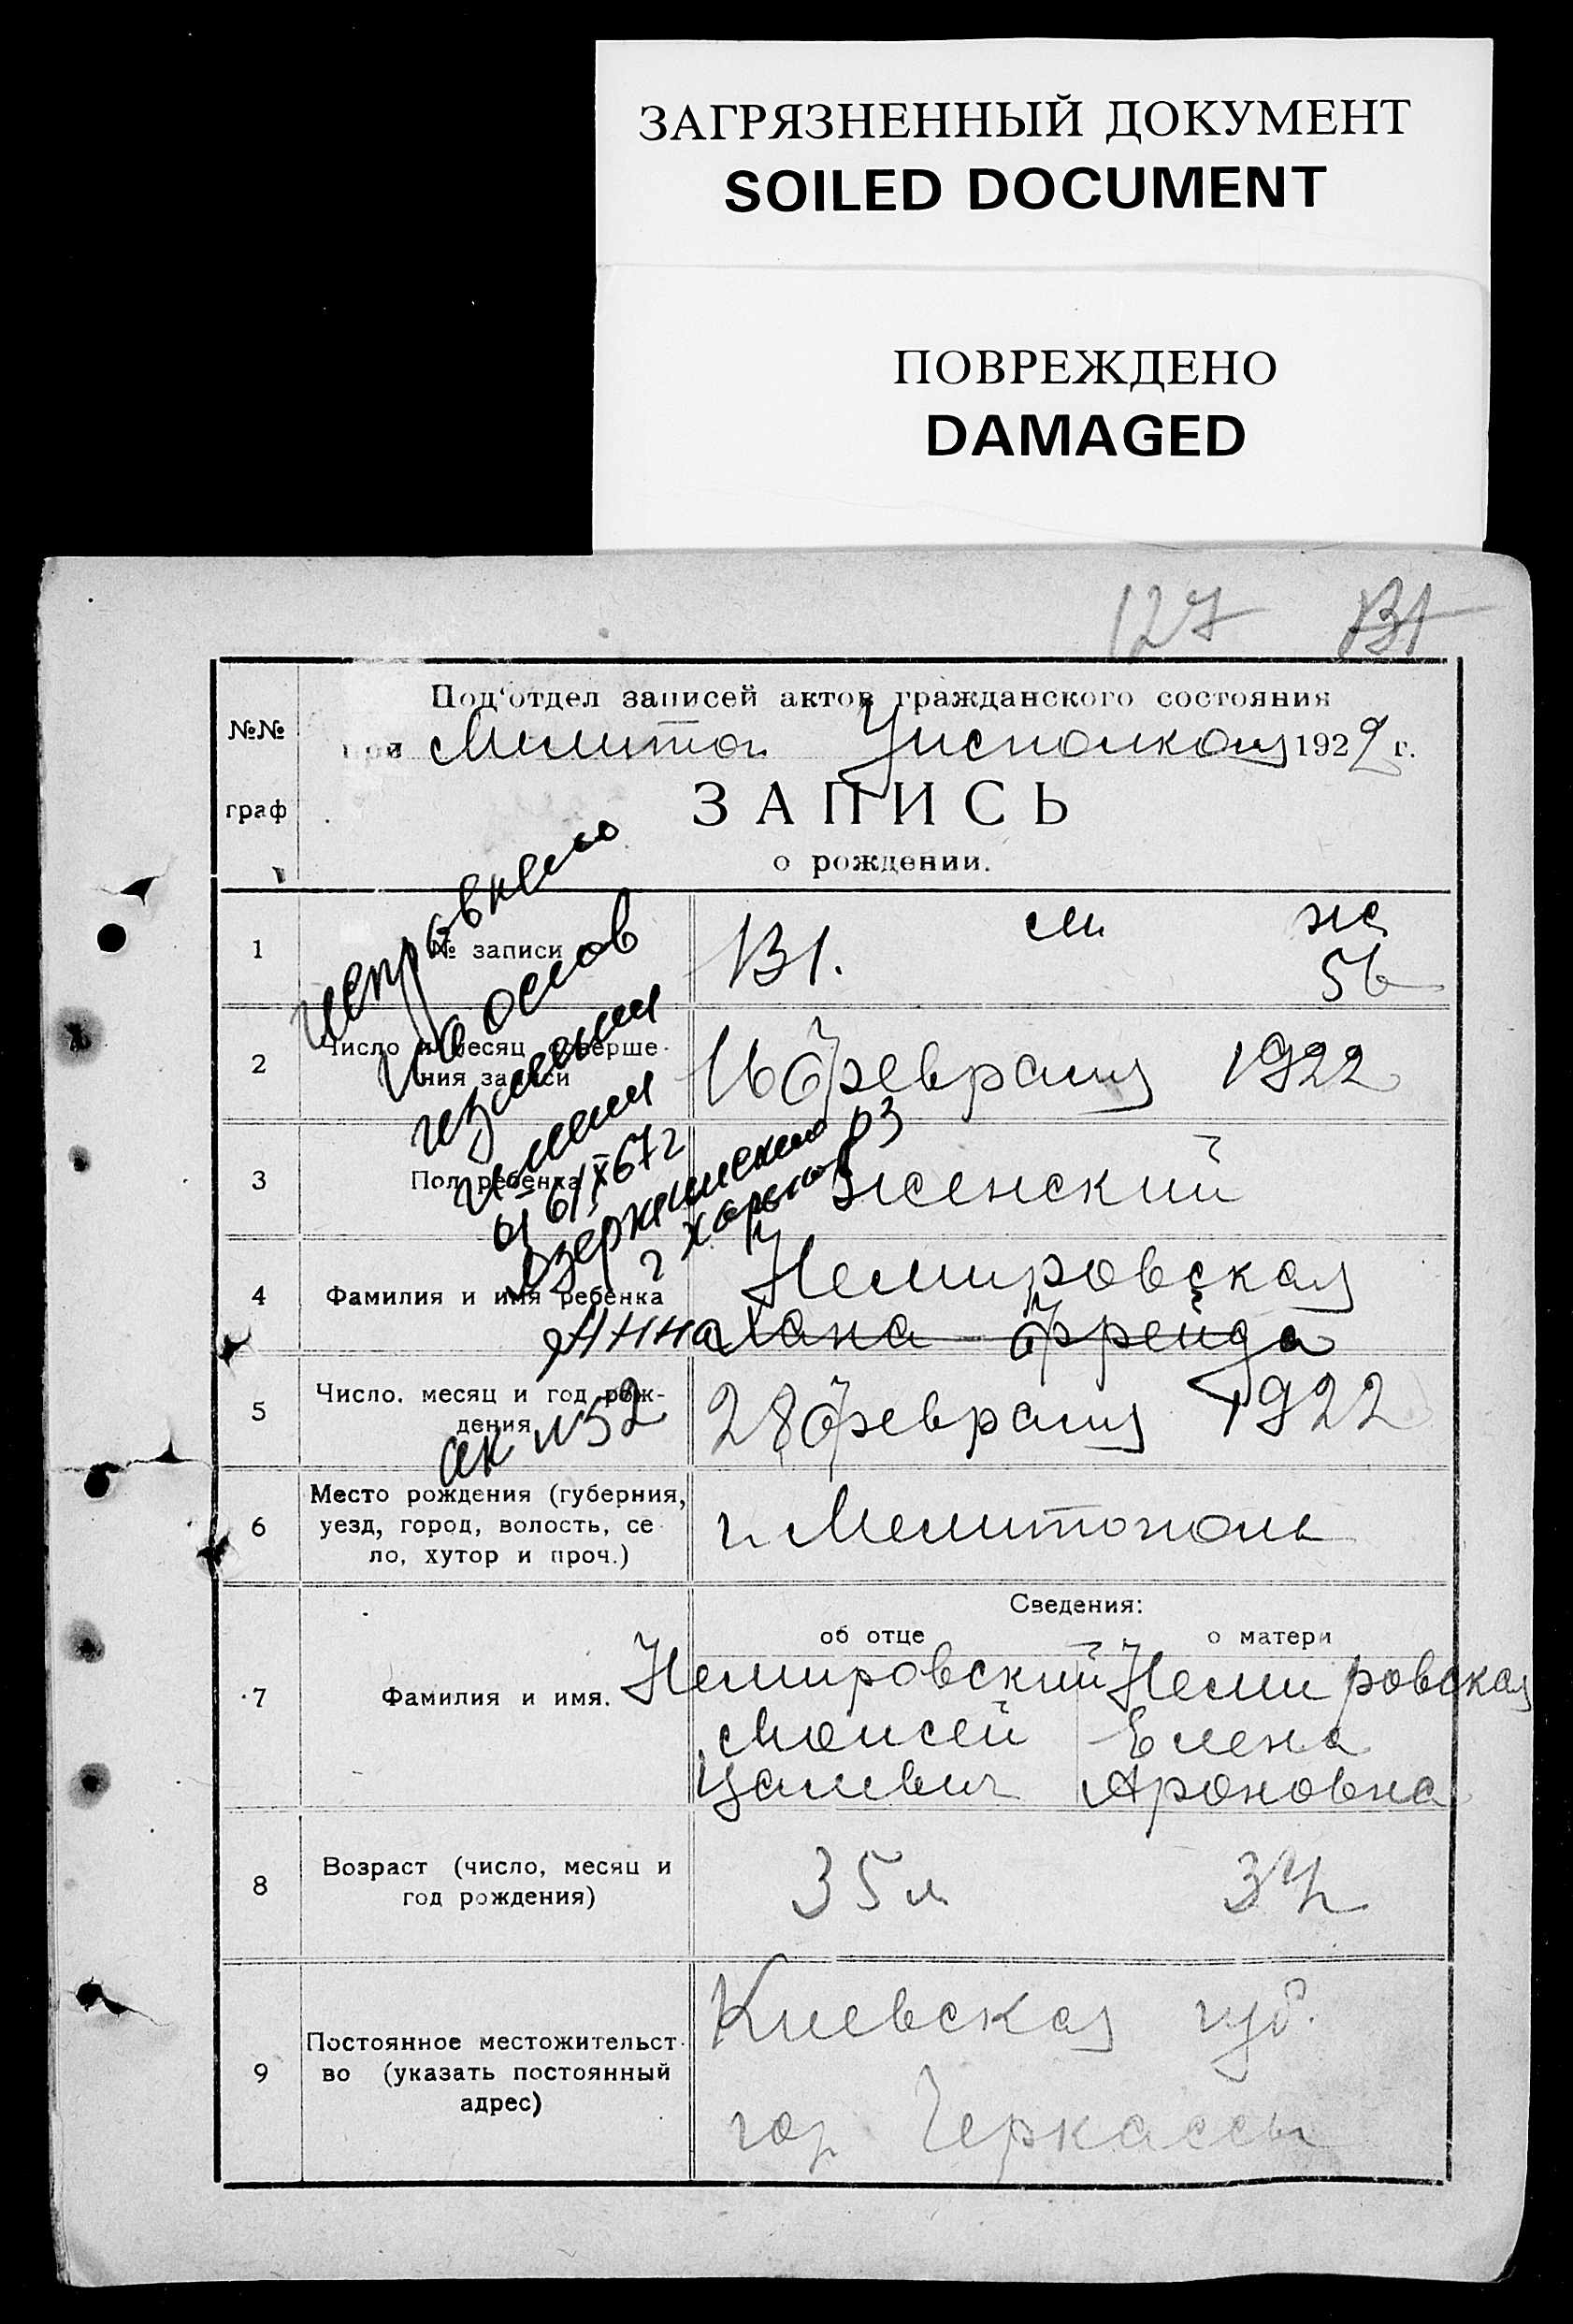 ЗАГРЯЗНЕННЫЙ ДОКУМЕНТ
SOILED DOCUMENT
ПОВРЕЖДЕНО
DAMAGED
127 131
№№
граф
Под'отдел записей актов гражданского состояния
при Мелитоп Уисполкому 1922 г.
ЗАПИСЬ
о рождении.
1
№ записи
131. м ж
56
2
Число и месяц соверше-
ния записи
16 февраля 1922
3
Пол ребенка
Женский
4
Фамилия и имя ребенка
Немировская
Анна Хана-Фрейда
5
Число. месяц и год рож-
дения
28 февраля 1922
6
Место рождения (губерния,
уезд, город, волость, се-
ло, хутор и проч.)
г. Мелитополь
Сведения:
об отце о матери
7
Фамилия и имя.
Немировский Немировская
Моисей Елена
Цалевич Ароновна
8
Возраст (число, месяц и
год рождения)
35 л
9
Постоянное местожительст-
во (указать постоянный
адрес)
Киевская губ.
гор Черкассы
исправлено
на основ
изменения
имени
от 6/X 67 г
Дзержинского РЗ
г Харьков
ак № 52